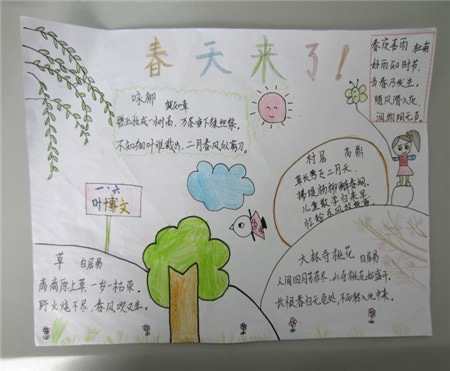 春天来了！
春夜喜雨 杜甫
好雨知时节，
当春乃发生。
随风潜入夜，
润物细无声。
咏柳
贺知章
碧玉妆成一树高，万条垂下绿丝绦。
不知细叶谁裁出，二月春风似剪刀。
村居 高鼎
草长莺飞二月天，
拂堤杨柳醉春烟。
儿童散学归来早，
忙趁东风放纸鸢。
一·六
叶博文
草 白居易
离离原上草，一岁一枯荣。
野火烧不尽，春风吹又生。
大林寺桃花 白居易
人间四月芳菲尽，山寺桃花始盛开。
长恨春归无觅处，不知转入此中来。